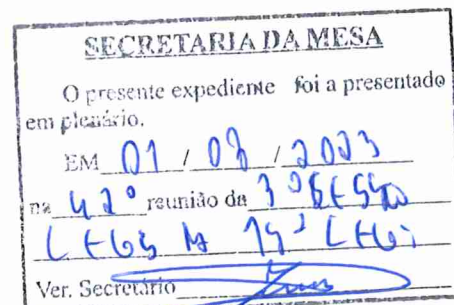 SECRETARIA DA MESA
O presente expediente foi a presentado
em plenário.
EM 01 / 08 / 2023
na 42º reunião da 3º SESSÃO
LEGIS DA 19ª LEGI
Ver. Secretário